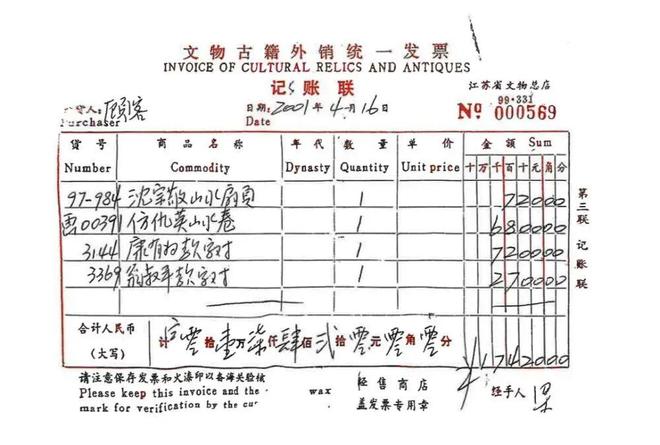 文物古籍外销统一发票
INVOICE OF CULTURAL RELICS AND ANTIQUES
记账联
江苏省文物总店
99·331
购货人：顾客
Purchaser
日期：2001年4月16日
Date
No 000569
货号 商品名称 年代 数量 单价 金额 Sum
Number Commodity Dynasty Quantity Unit price 十万千百十元角分
97-984 沈宗敬山水扇页 1 72000
00391 仿仇英山水卷 1 680000
3144 康有为款字对 1 720000
3369 翁叔平款字对 1 270000
合计人民币（大写） 计 零拾壹万柒仟肆佰贰拾零元零角零分 1742000
请注意保存发票和火漆印以备海关验核
Please keep this invoice and the wax
mark for verification by the
经售商店
盖发票专用章
经手人 梁
第三联 记账联